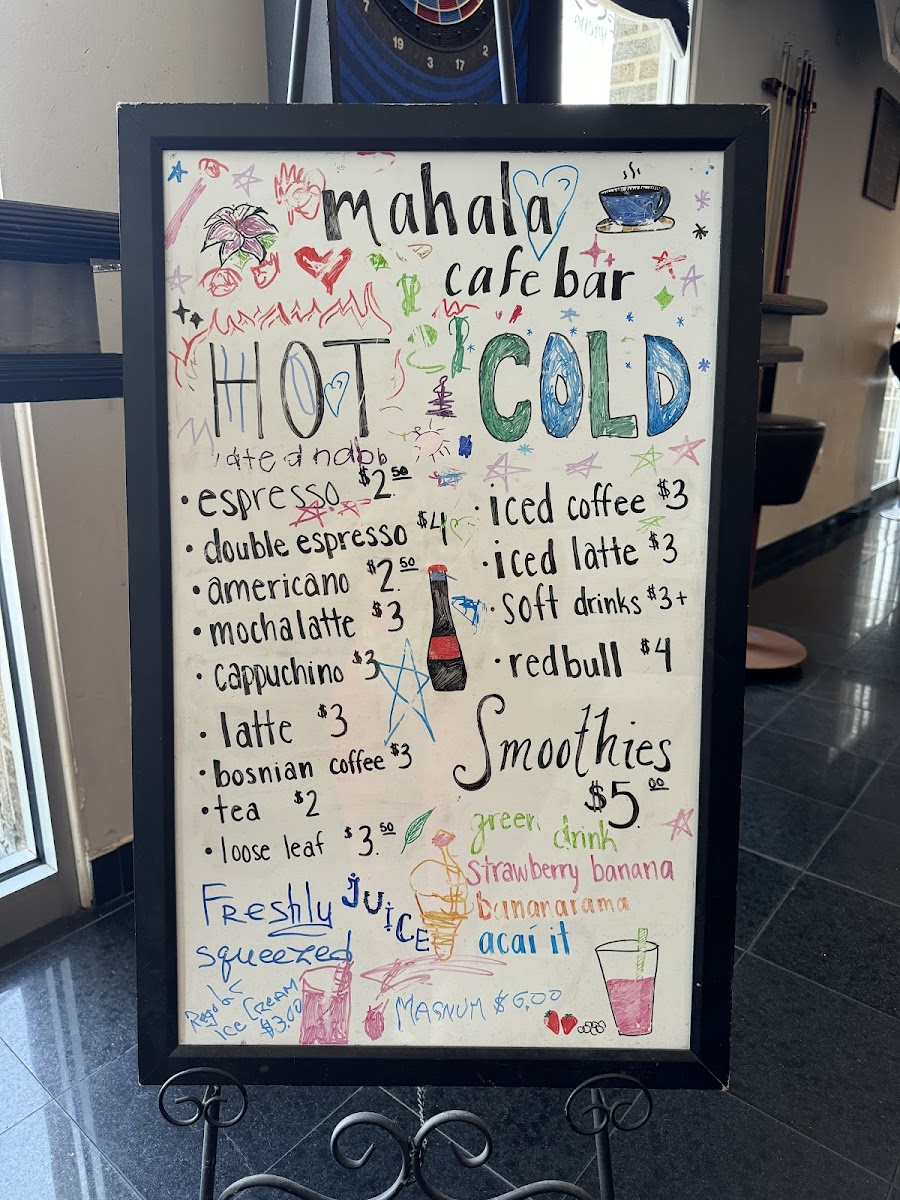 19
3
17
2
7
mahala
cafe bar
HOT
• espresso $2.50
• double espresso $4
• americano $2.50
• mocha latte $3
• cappuchino $3
• latte $3
• bosnian coffee $3
• tea $2
• loose leaf $3.50
Freshly
squeezed
JUiCE
Regular
ice CREAM
$3.00
COLD
• iced coffee $3
• iced latte $3
• soft drinks $3+
• redbull $4
Smoothies
$5.00
green drink
strawberry banana
bananarama
acai it
MAGNUM $6.00